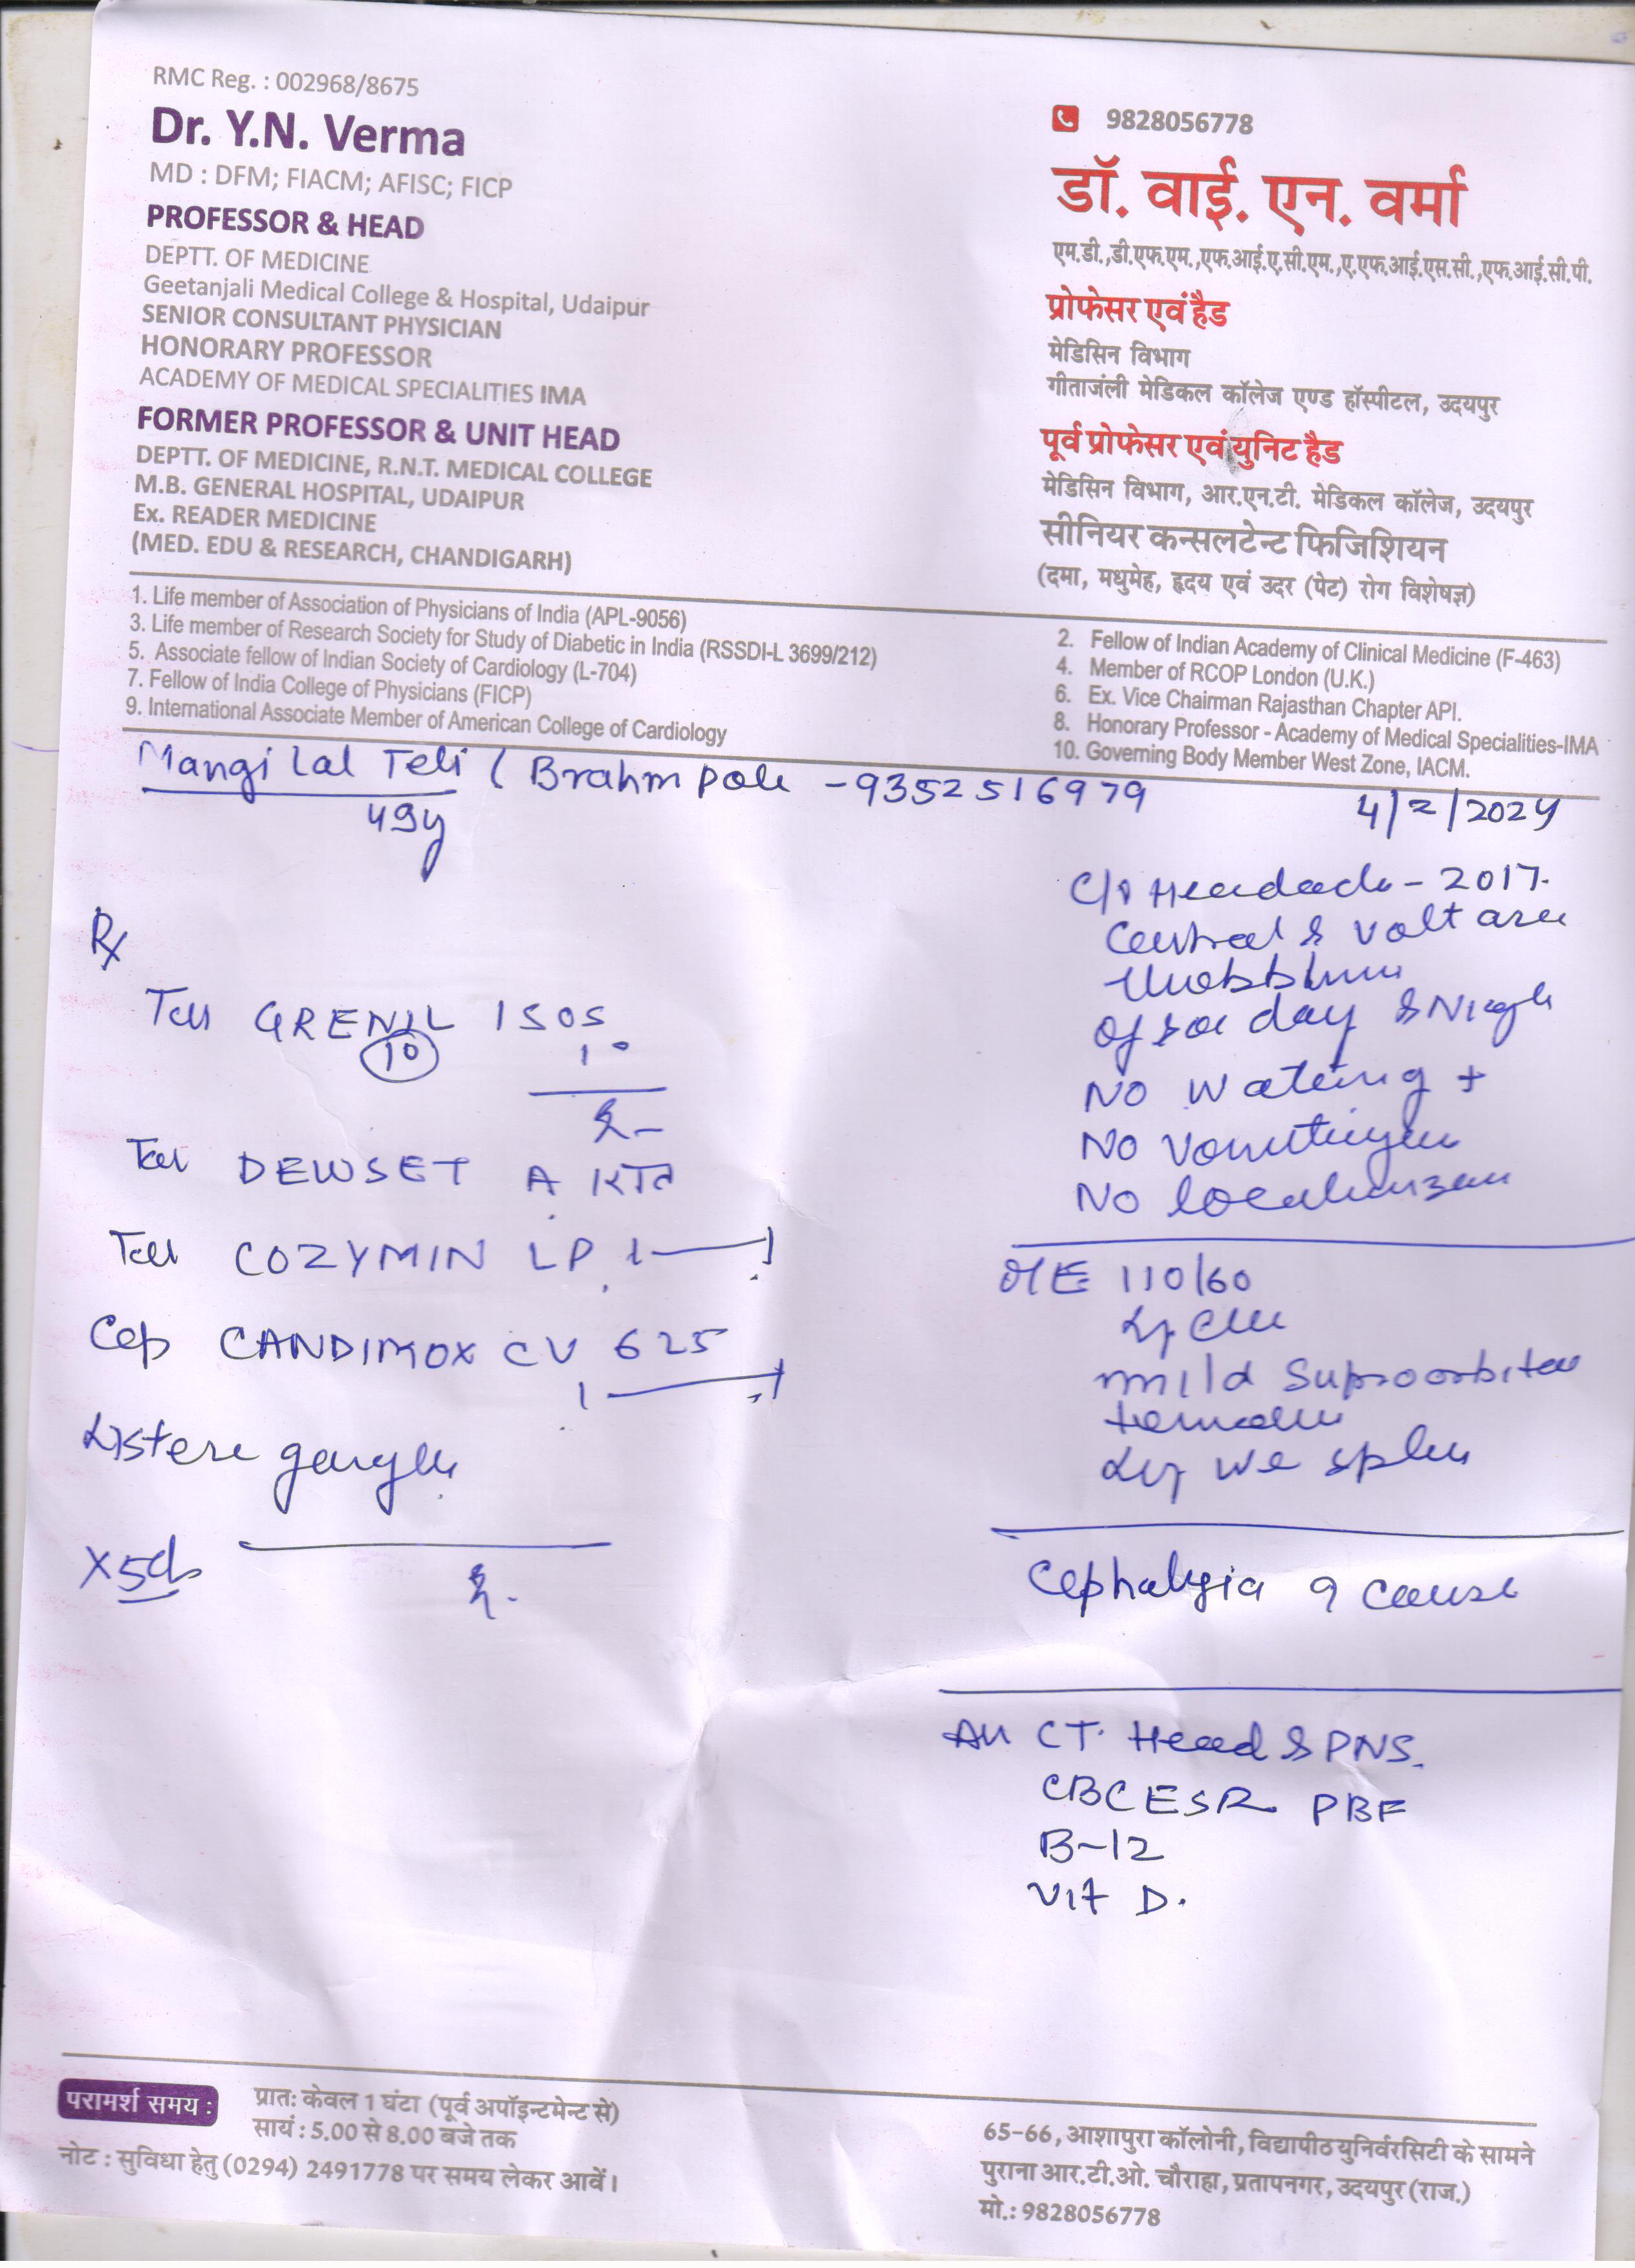 RMC Reg. : 002968/8675
Dr. Y.N. Verma
MD : DFM; FIACM; AFISC; FICP
PROFESSOR & HEAD
DEPTT. OF MEDICINE
Geetanjali Medical College & Hospital, Udaipur
SENIOR CONSULTANT PHYSICIAN
HONORARY PROFESSOR
ACADEMY OF MEDICAL SPECIALITIES IMA
FORMER PROFESSOR & UNIT HEAD
DEPTT. OF MEDICINE, R.N.T. MEDICAL COLLEGE
M.B. GENERAL HOSPITAL, UDAIPUR
Ex. READER MEDICINE
(MED. EDU & RESEARCH, CHANDIGARH)
9828056778
डॉ. वाई. एन. वर्मा
एम.डी.,डी.एफ.एम.,एफ.आई.ए.सी.एम.,ए.एफ.आई.एस.सी.,एफ.आई.सी.पी.
प्रोफेसर एवं हैड
मेडिसिन विभाग
गीताजंली मेडिकल कॉलेज एण्ड हॉस्पीटल, उदयपुर
पूर्व प्रोफेसर एवं युनिट हैड
मेडिसिन विभाग, आर.एन.टी. मेडिकल कॉलेज, उदयपुर
सीनियर कन्सलटेन्ट फिजिशियन
(दमा, मधुमेह, हृदय एवं उदर (पेट) रोग विशेषज्ञ)
1. Life member of Association of Physicians of India (APL-9056)
2. Fellow of Indian Academy of Clinical Medicine (F-463)
3. Life member of Research Society for Study of Diabetic in India (RSSDI-L 3699/212)
4. Member of RCOP London (U.K.)
5. Associate fellow of Indian Society of Cardiology (L-704)
6. Ex. Vice Chairman Rajasthan Chapter API.
7. Fellow of India College of Physicians (FICP)
8. Honorary Professor - Academy of Medical Specialities-IMA
9. International Associate Member of American College of Cardiology
10. Governing Body Member West Zone, IACM.
Mangi Lal Teli ( Brahm pole - 9352516979
49y
4/2/2024
Rx
Tab GRENIL 1 SOS
10
Tab DEWSET A रात
Tab COZYMIN LP 1 — 1
Cap CANDIMOX CV 625
1 — 1
gargle
x5d
C/o Headache - 2017.
&
day & Night
NO watering +
NO Vomiting
NO
O/E 110/60
mild Supraorbital
Cephalgia ? cause
CT. Head & PNS.
CBC ESR PBF
B-12
Vit D.
परामर्श समय :
प्रातः केवल 1 घंटा (पूर्व अपॉइन्टमेन्ट से)
सायं : 5.00 से 8.00 बजे तक
नोट : सुविधा हेतु (0294) 2491778 पर समय लेकर आवें।
65-66, आशापुरा कॉलोनी, विद्यापीठ युनिर्वरसिटी के सामने
पुराना आर.टी.ओ. चौराहा, प्रतापनगर, उदयपुर (राज.)
मो.: 9828056778